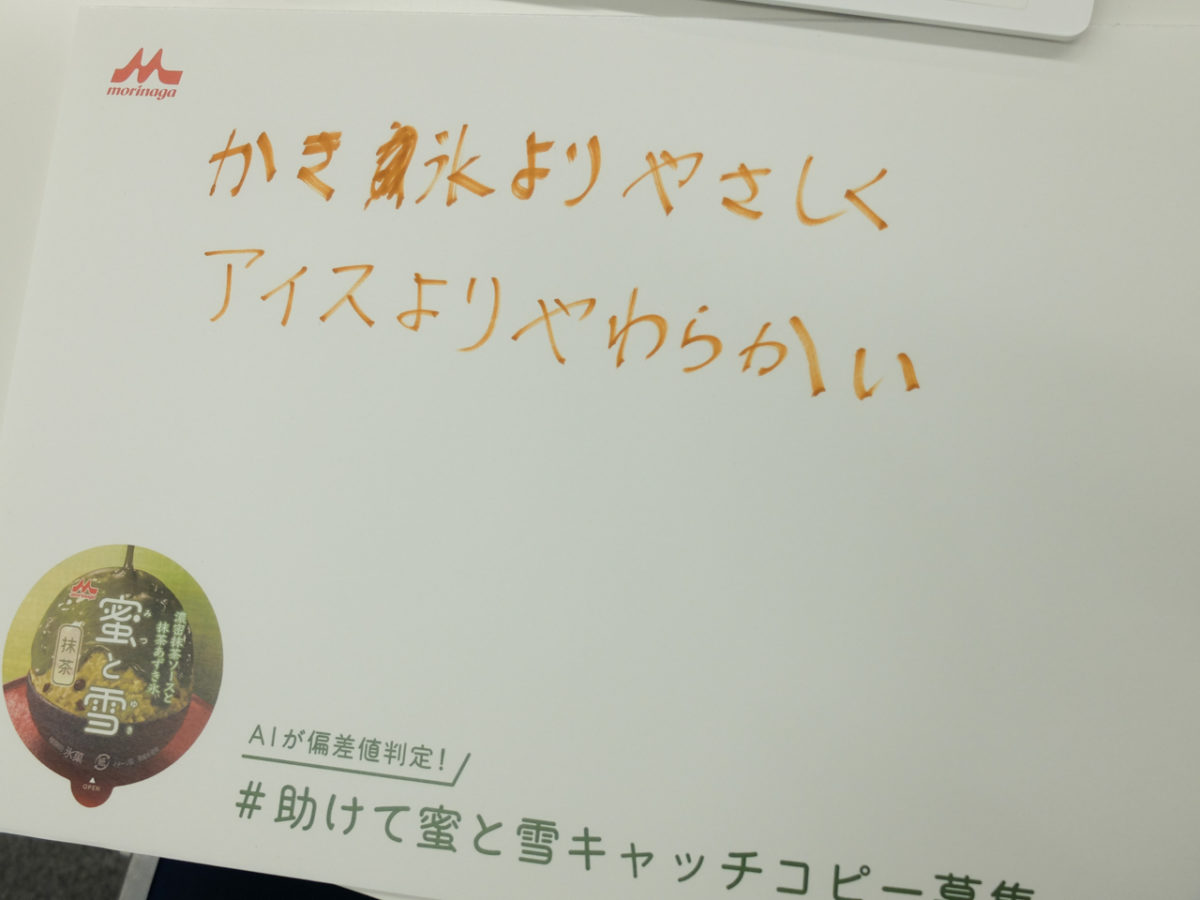 morinaga
かき氷よりやさしく
アイスよりやわらかい
蜜と雪
みつ
ゆき
抹茶
濃密抹茶ソースと
抹茶あずき氷
氷菓
OPEN
AIが偏差値判定!
#助けて蜜と雪キャッチコピー募集